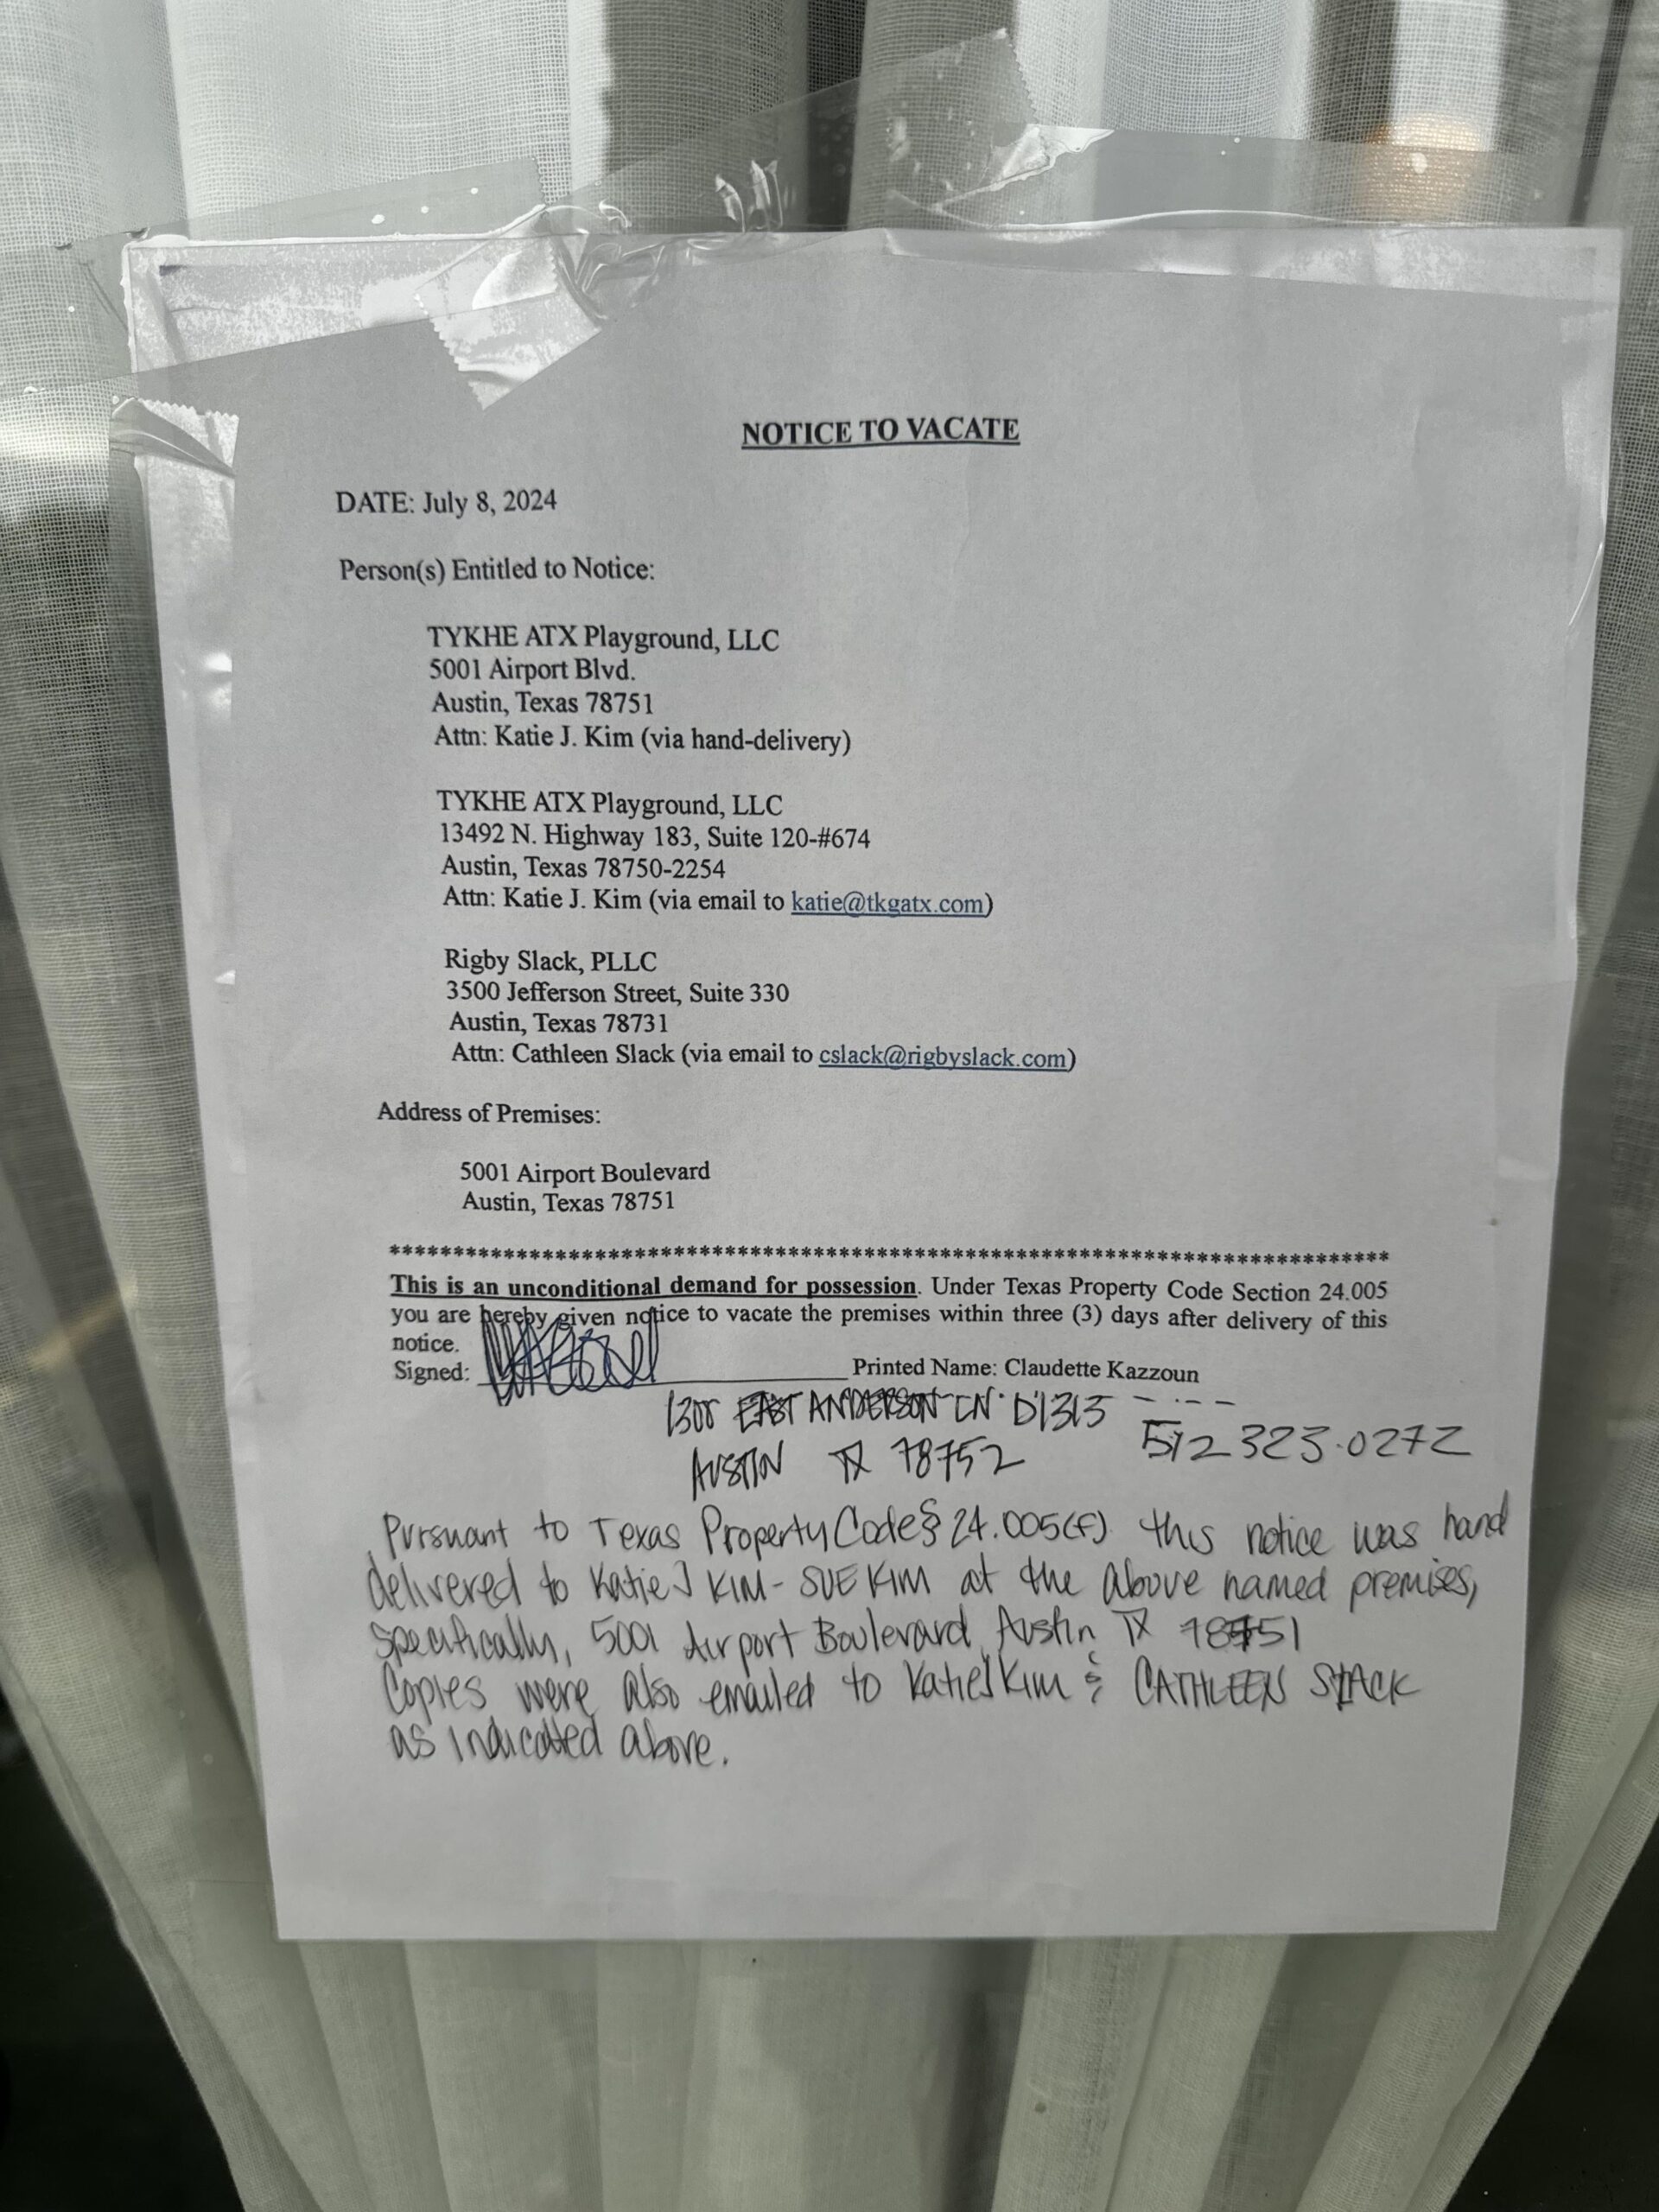 NOTICE TO VACATE
DATE: July 8, 2024
Person(s) Entitled to Notice:
TYKHE ATX Playground, LLC
5001 Airport Blvd.
Austin, Texas 78751
Attn: Katie J. Kim (via hand-delivery)
TYKHE ATX Playground, LLC
13492 N. Highway 183, Suite 120-#674
Austin, Texas 78750-2254
Attn: Katie J. Kim (via email to katie@tkgatx.com)
Rigby Slack, PLLC
3500 Jefferson Street, Suite 330
Austin, Texas 78731
Attn: Cathleen Slack (via email to cslack@rigbyslack.com)
Address of Premises:
5001 Airport Boulevard
Austin, Texas 78751
******************************************************************************
This is an unconditional demand for possession. Under Texas Property Code Section 24.005
you are hereby given notice to vacate the premises within three (3) days after delivery of this
notice.
Signed: Printed Name: Claudette Kazzoun
1300 EAST ANDERSON LN. D1313
512 323.0272
AUSTIN TX 78752
Pursuant to Texas Property Code § 24.005(f) this notice was hand
delivered to Katie J KIM - SUE KIM at the above named premises,
specifically, 5001 Airport Boulevard, Austin TX 78751
Copies were also emailed to Katie J Kim & CATHLEEN SLACK
as indicated above.